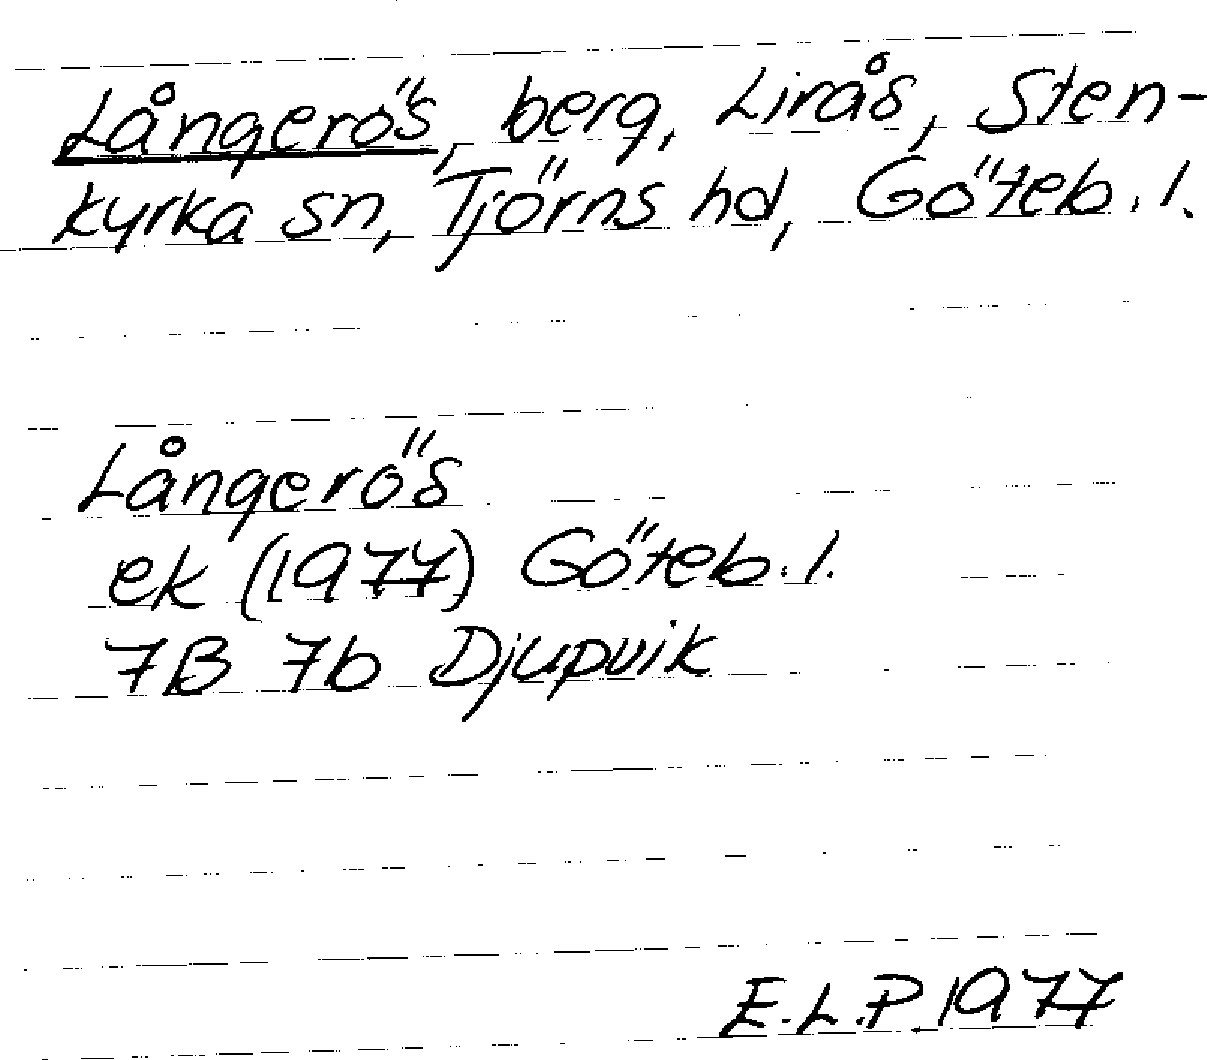 Långerös, berg, Lirås, Sten-
kyrka sn, Tjörns hd, Göteb.l.
Långerös
ek (1977) Göteb.l.
7B 7b Djupvik
E.L.P. 1977